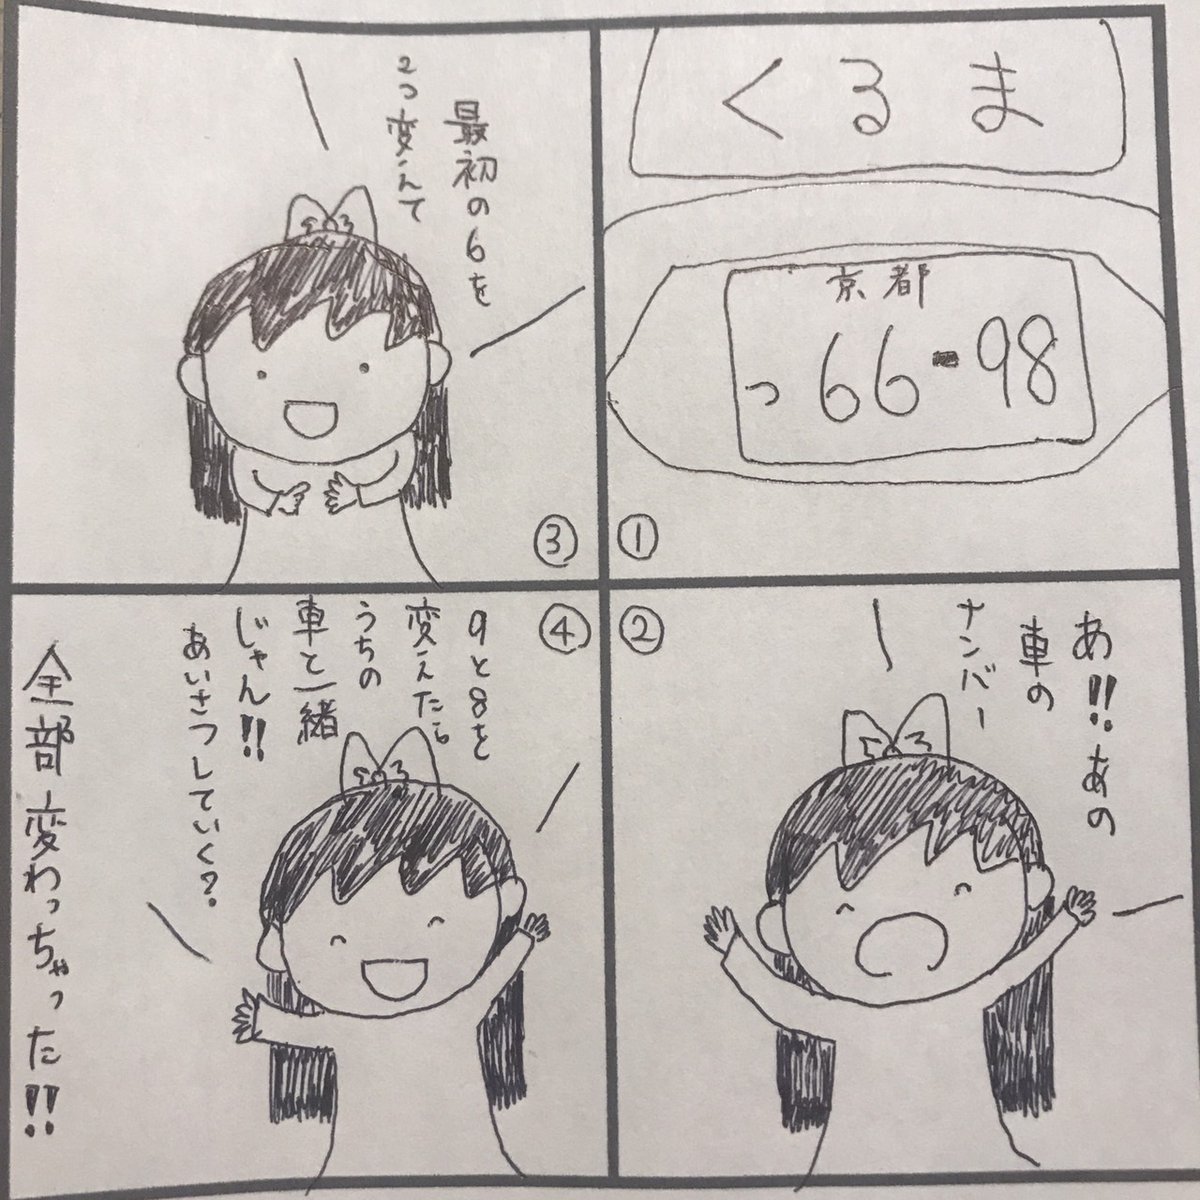 くるま
京都
っ 66-98
①
②
あ!!あの
車の
ナンバー
③
最初の6を
2つ変えて
④
9と8を
変えたら
うちの
車と一緒
じゃん!!
あいさつしていく?
全部変わっちゃった!!